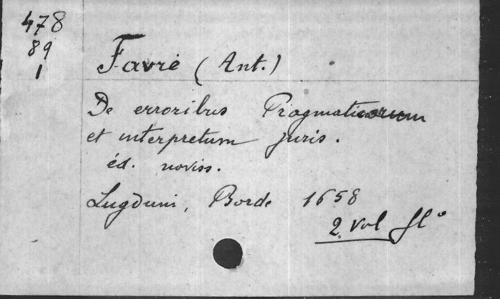 478
89
1
Favre (Ant.)
De erroribus Pragmaticorum
et interpretum juris.
éd. noviss.
Lugduni, Borde 1658
2. vol fl°